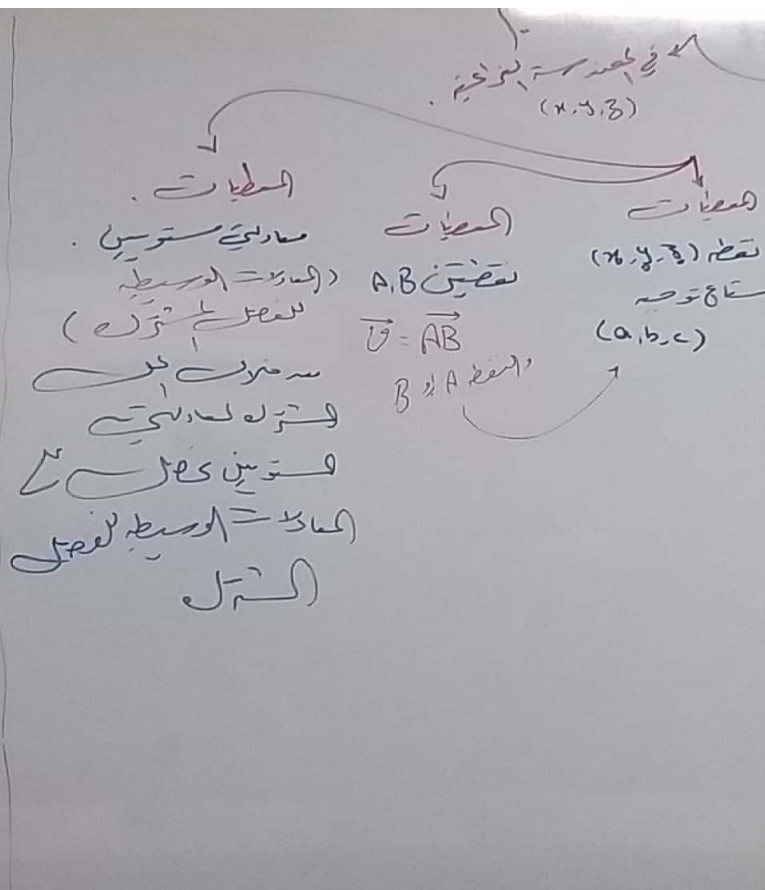 في الهندسة الفراغية .
(x, y, z)
المعطيات
نقطة (x, y, z)
شعاع توجيه
(a, b, c)
المعطيات
نقطتين A, B
v = AB
والنقطة A أو B
المعطيات .
معادلتي مستويين .
(المعادلات الوسيطية
للفصل المشترك)
من خلال الحل
المشترك لمعادلتي
المستويين نحصل على
المعادلات الوسيطية للفصل
المشترك